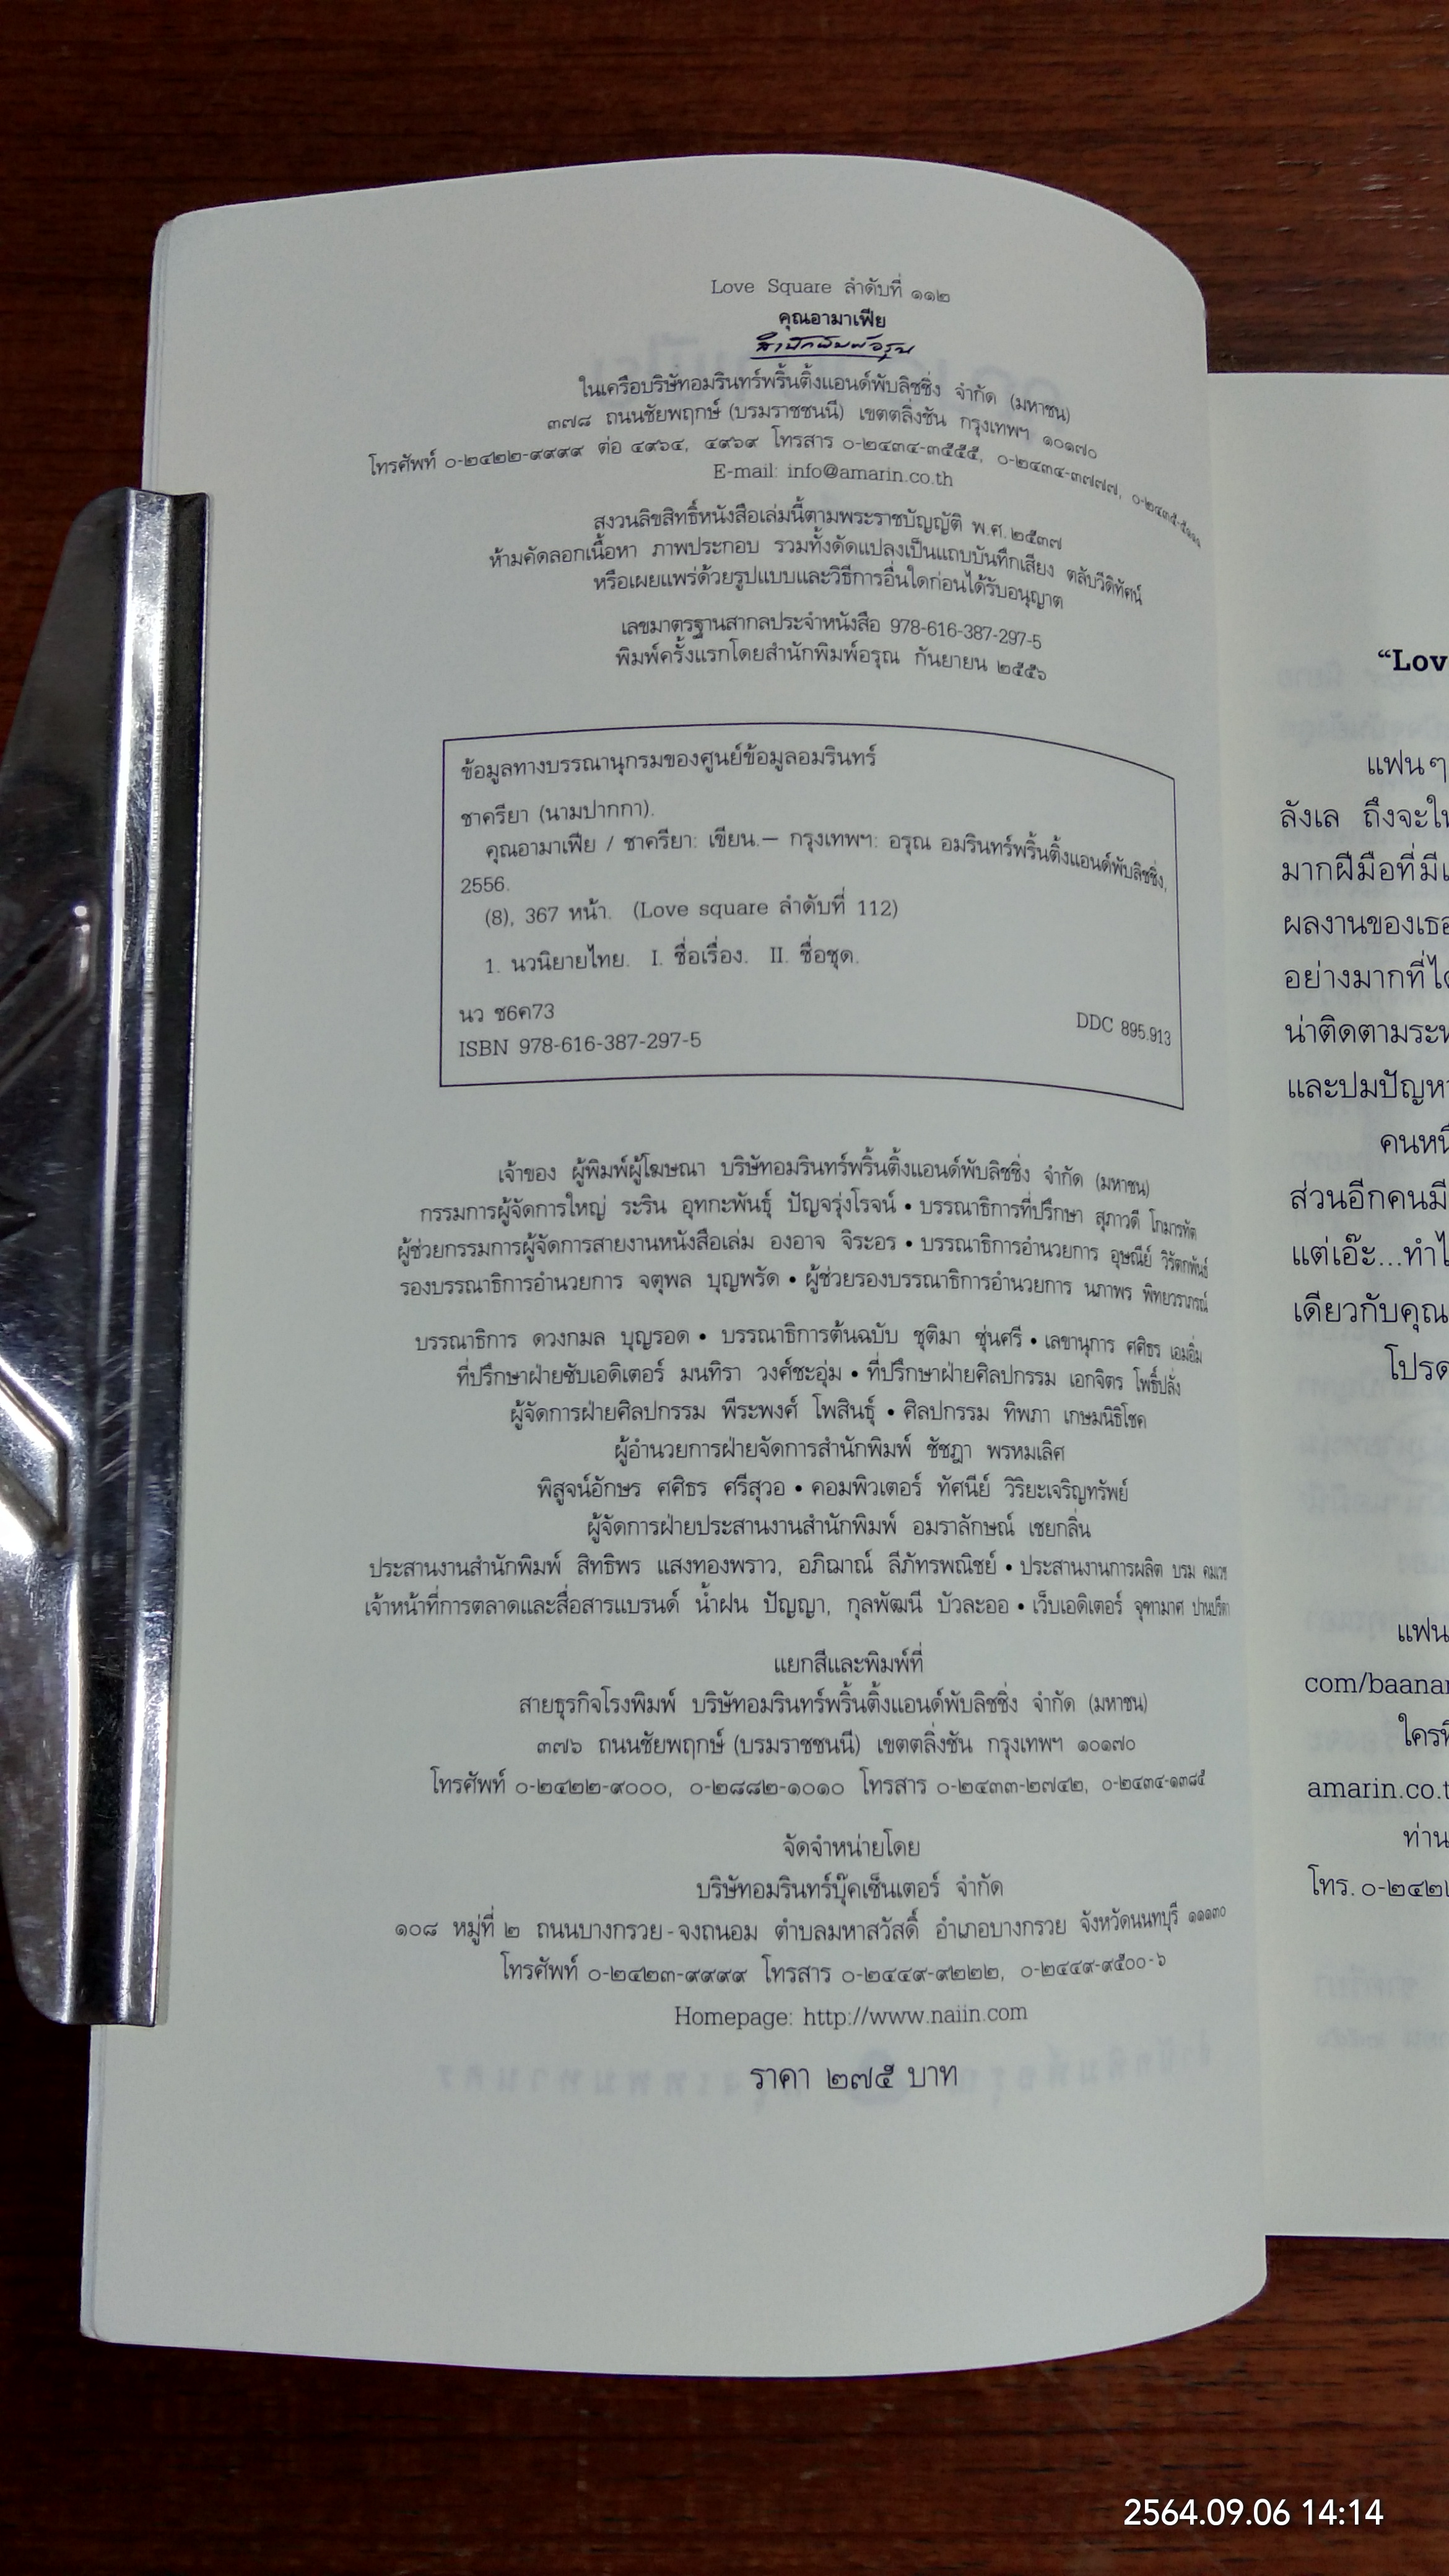 Love Square ลำดับที่ ๑๑๒
คุณอามาเฟีย
สำนักพิมพ์อรุณ
ในเครือบริษัทอมรินทร์พริ้นติ้งแอนด์พับลิชชิ่ง จำกัด (มหาชน)
๓๗๘ ถนนชัยพฤกษ์ (บรมราชชนนี) เขตตลิ่งชัน กรุงเทพฯ ๑๐๑๗๐
โทรศัพท์ ๐-๒๔๒๒-๙๙๙๙ ต่อ ๔๙๖๔, ๔๙๖๙ โทรสาร ๐-๒๔๓๔-๓๕๕๕, ๐-๒๔๓๔-๓๗๗๗,
E-mail: info@amarin.co.th
สงวนลิขสิทธิ์หนังสือเล่มนี้ตามพระราชบัญญัติ พ.ศ. ๒๕๓๗
ห้ามคัดลอกเนื้อหา ภาพประกอบ รวมทั้งดัดแปลงเป็นแถบบันทึกเสียง ตลับวีดิทัศน์
หรือเผยแพร่ด้วยรูปแบบและวิธีการอื่นใดก่อนได้รับอนุญาต
เลขมาตรฐานสากลประจำหนังสือ 978-616-387-297-5
พิมพ์ครั้งแรกโดยสำนักพิมพ์อรุณ กันยายน ๒๕๕๖
ข้อมูลทางบรรณานุกรมของศูนย์ข้อมูลอมรินทร์
ชาครียา (นามปากกา).
คุณอามาเฟีย / ชาครียา: เขียน.— กรุงเทพฯ: อรุณ อมรินทร์พริ้นติ้งแอนด์พับลิชชิ่ง,
2556.
(8), 367 หน้า. (Love square ลำดับที่ 112)
1. นวนิยายไทย. I. ชื่อเรื่อง. II. ชื่อชุด.
นว ช6ค73
DDC 895.913
ISBN 978-616-387-297-5
เจ้าของ ผู้พิมพ์ผู้โฆษณา บริษัทอมรินทร์พริ้นติ้งแอนด์พับลิชชิ่ง จำกัด (มหาชน)
กรรมการผู้จัดการใหญ่ ระริน อุทกะพันธุ์ ปัญจรุ่งโรจน์ • บรรณาธิการที่ปรึกษา สุภาวดี โกมารทัต
ผู้ช่วยกรรมการผู้จัดการสายงานหนังสือเล่ม องอาจ จิระอร • บรรณาธิการอำนวยการ อุษณีย์ วิรัตกพันธ์
รองบรรณาธิการอำนวยการ จตุพล บุญพรัด • ผู้ช่วยรองบรรณาธิการอำนวยการ นภาพร พิทยวราภรณ์
บรรณาธิการ ดวงกมล บุญรอด • บรรณาธิการต้นฉบับ ชุติมา ซุ่นศรี • เลขานุการ ศศิธร เอมอิ่ม
ที่ปรึกษาฝ่ายซับเอดิเตอร์ มนทิรา วงศ์ชะอุ่ม • ที่ปรึกษาฝ่ายศิลปกรรม เอกจิตร โพธิ์ปลั่ง
ผู้จัดการฝ่ายศิลปกรรม พีระพงศ์ โพสินธุ์ • ศิลปกรรม ทิพภา เกษมนิธิโชค
ผู้อำนวยการฝ่ายจัดการสำนักพิมพ์ ชัชฎา พรหมเลิศ
พิสูจน์อักษร ศศิธร ศรีสุวอ • คอมพิวเตอร์ ทัศนีย์ วิริยะเจริญทรัพย์
ผู้จัดการฝ่ายประสานงานสำนักพิมพ์ อมราลักษณ์ เชยกลิ่น
ประสานงานสำนักพิมพ์ สิทธิพร แสงทองพราว, อภิฌาณ์ ลีภัทรพณิชย์ • ประสานงานการผลิต บรม
เจ้าหน้าที่การตลาดและสื่อสารแบรนด์ น้ำฝน ปัญญา, กุลพัฒนี บัวละออ • เว็บเอดิเตอร์ จุฑามาศ
แยกสีและพิมพ์ที่
สายธุรกิจโรงพิมพ์ บริษัทอมรินทร์พริ้นติ้งแอนด์พับลิชชิ่ง จำกัด (มหาชน)
๓๗๖ ถนนชัยพฤกษ์ (บรมราชชนนี) เขตตลิ่งชัน กรุงเทพฯ ๑๐๑๗๐
โทรศัพท์ ๐-๒๔๒๒-๙๐๐๐, ๐-๒๘๘๒-๑๐๑๐ โทรสาร ๐-๒๔๓๓-๒๗๔๒, ๐-๒๔๓๔-๑๓๘๕
จัดจำหน่ายโดย
บริษัทอมรินทร์บุ๊คเซ็นเตอร์ จำกัด
๑๐๘ หมู่ที่ ๒ ถนนบางกรวย-จงถนอม ตำบลมหาสวัสดิ์ อำเภอบางกรวย จังหวัดนนทบุรี ๑๑๑๓๐
โทรศัพท์ ๐-๒๔๒๓-๙๙๙๙ โทรสาร ๐-๒๔๔๙-๙๒๒๒, ๐-๒๔๔๙-๙๕๐๐-๖
Homepage: http://www.naiin.com
ราคา ๒๗๕ บาท
“Lov
แฟนๆ
ลังเล ถึงจะให
มากฝีมือที่มี
ผลงานของเธอ
อย่างมากที่ได
น่าติดตามระ
และปมปัญหา
คนหนึ
ส่วนอีกคนมี
แต่เอ๊ะ...ทำไ
เดียวกับคุณ
โปรด
แฟน
com/baanar
ใครที
amarin.co.t
ท่าน
โทร. ๐-๒๔๒
2564.09.06 14:14